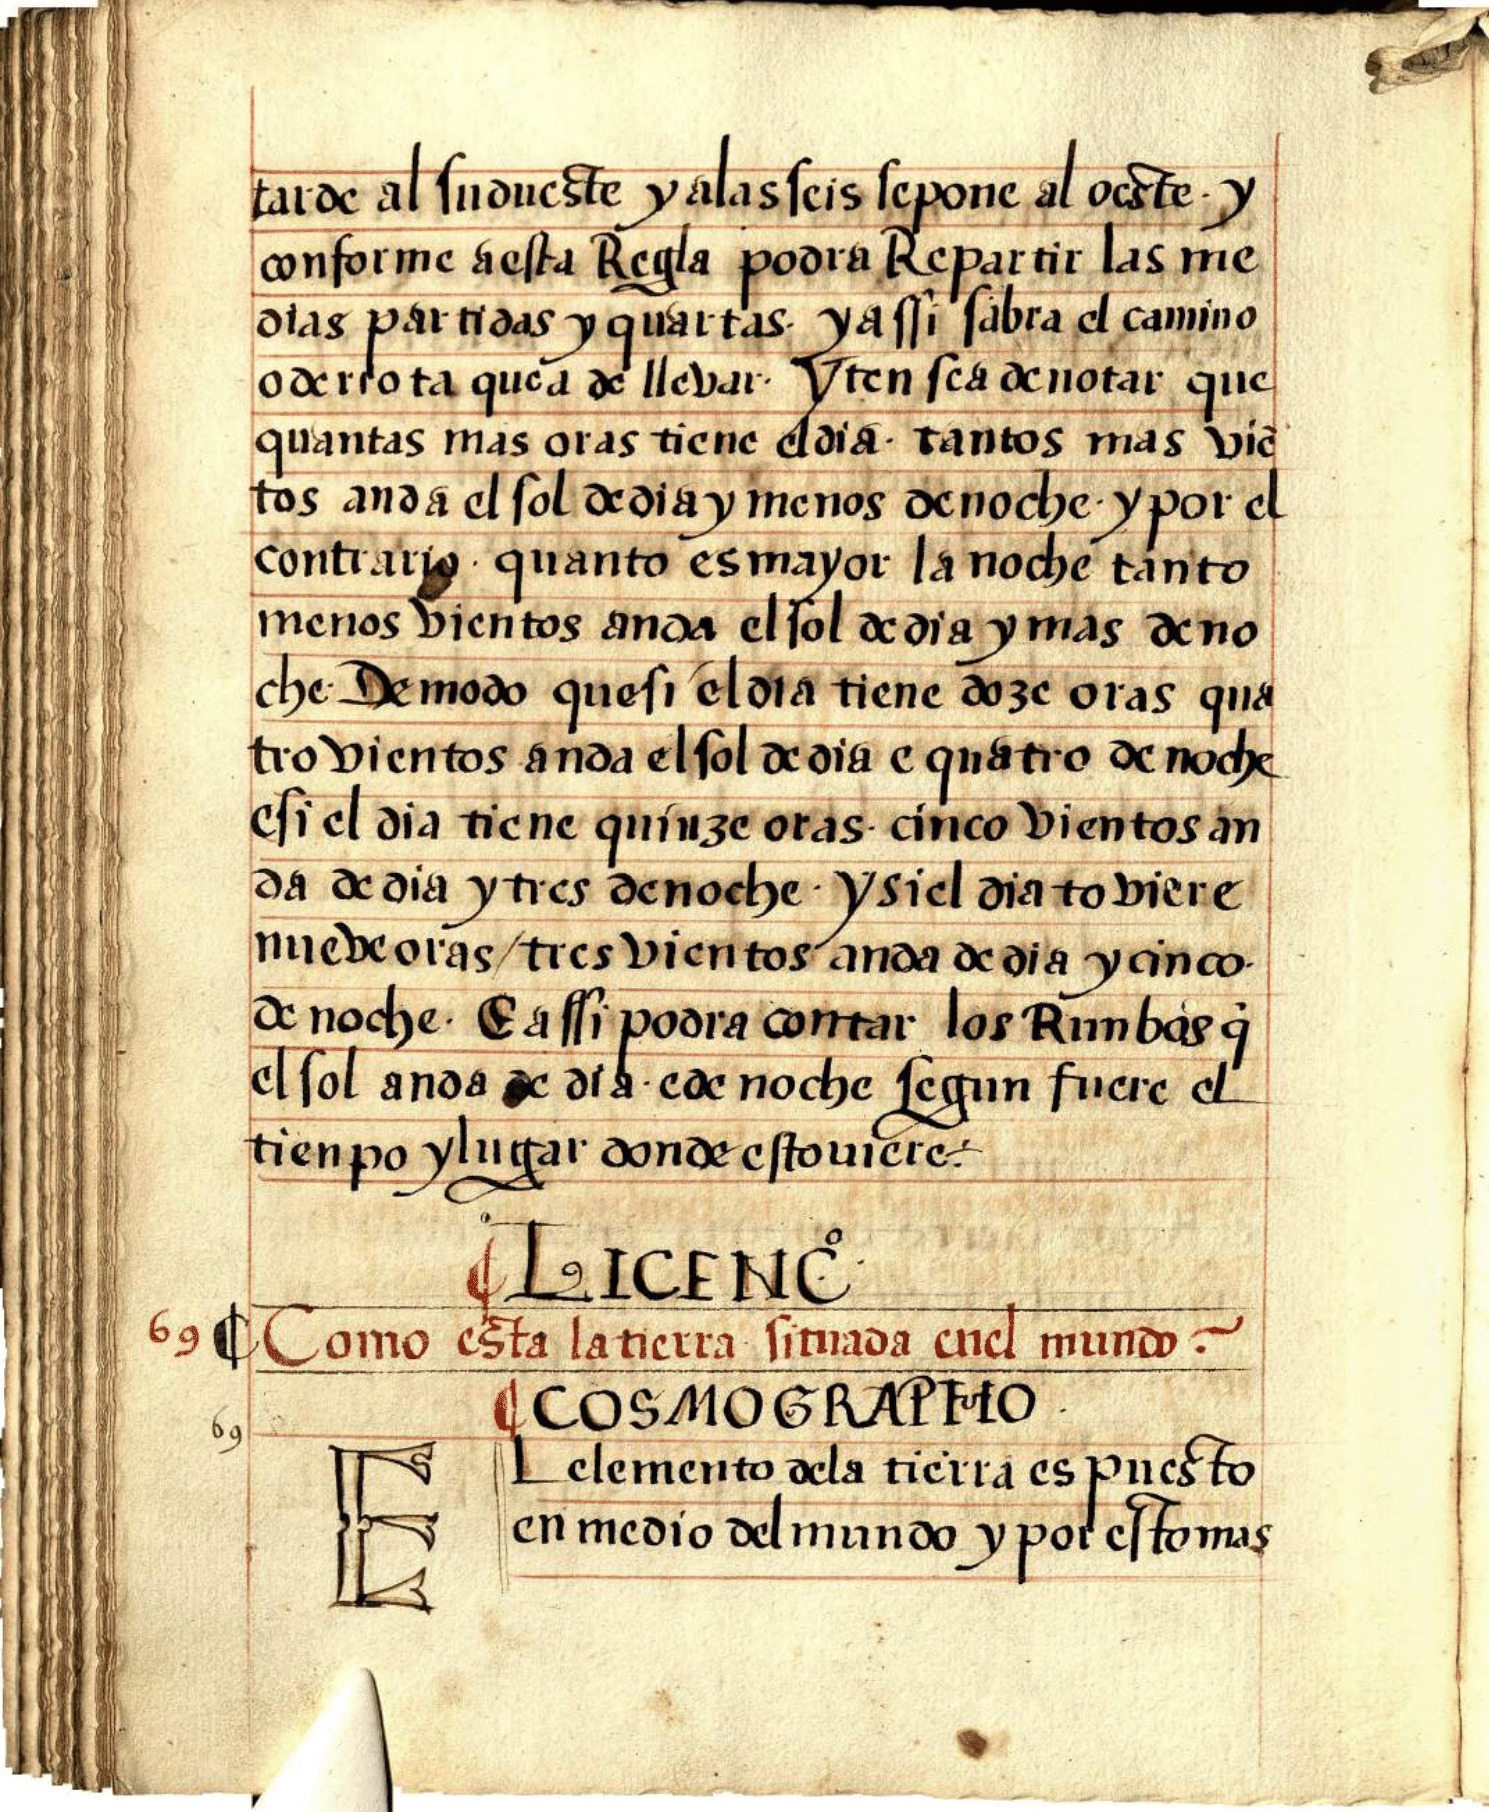 tarde al sudueste y alas seis sepone al oeste · y
conforme aesta Regla podra Repartir las me
dias partidas y quartas · y assi sabra el camino
o derrota quea de llevar · Yten sea de notar que
quantas mas oras tiene el dia · tantos mas viẽ
tos anda el sol de dia y menos de noche · y por el
contrario · quanto es mayor la noche tanto
menos vientos anda el sol de dia y mas de no
che · De modo que si el dia tiene doze oras qua
tro vientos anda el sol de dia e quatro de noche
e si el dia tiene quinze oras · cinco vientos an
da de dia y tres de noche · Y si el dia toviere
nueve oras / tres vientos anda de dia y cinco ·
de noche · E assi podra contar los Runbos q̃
el sol anda de dia · e de noche segun fuere el
tienpo y lugar donde estouiere :~
¶ LICENC͂º ·
69 ¶ Como esta la tierra situada enel mundo :~
¶ COSMOGRAPHO ·
69
E L elemento dela tierra es puesto
en medio del mundo y por esto mas